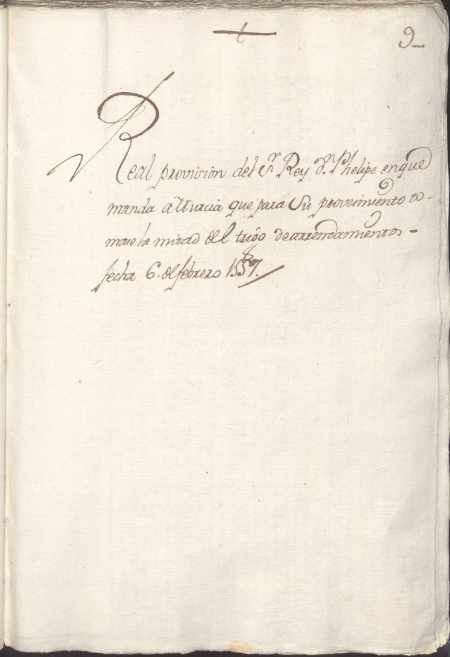 9
Real provision del Sr Rey Dn Phelipe en que
manda a Murcia que para su proveimiento to-
mase la mitad del trigo de arrendamientos -
fecha 6. de febrero 1557.